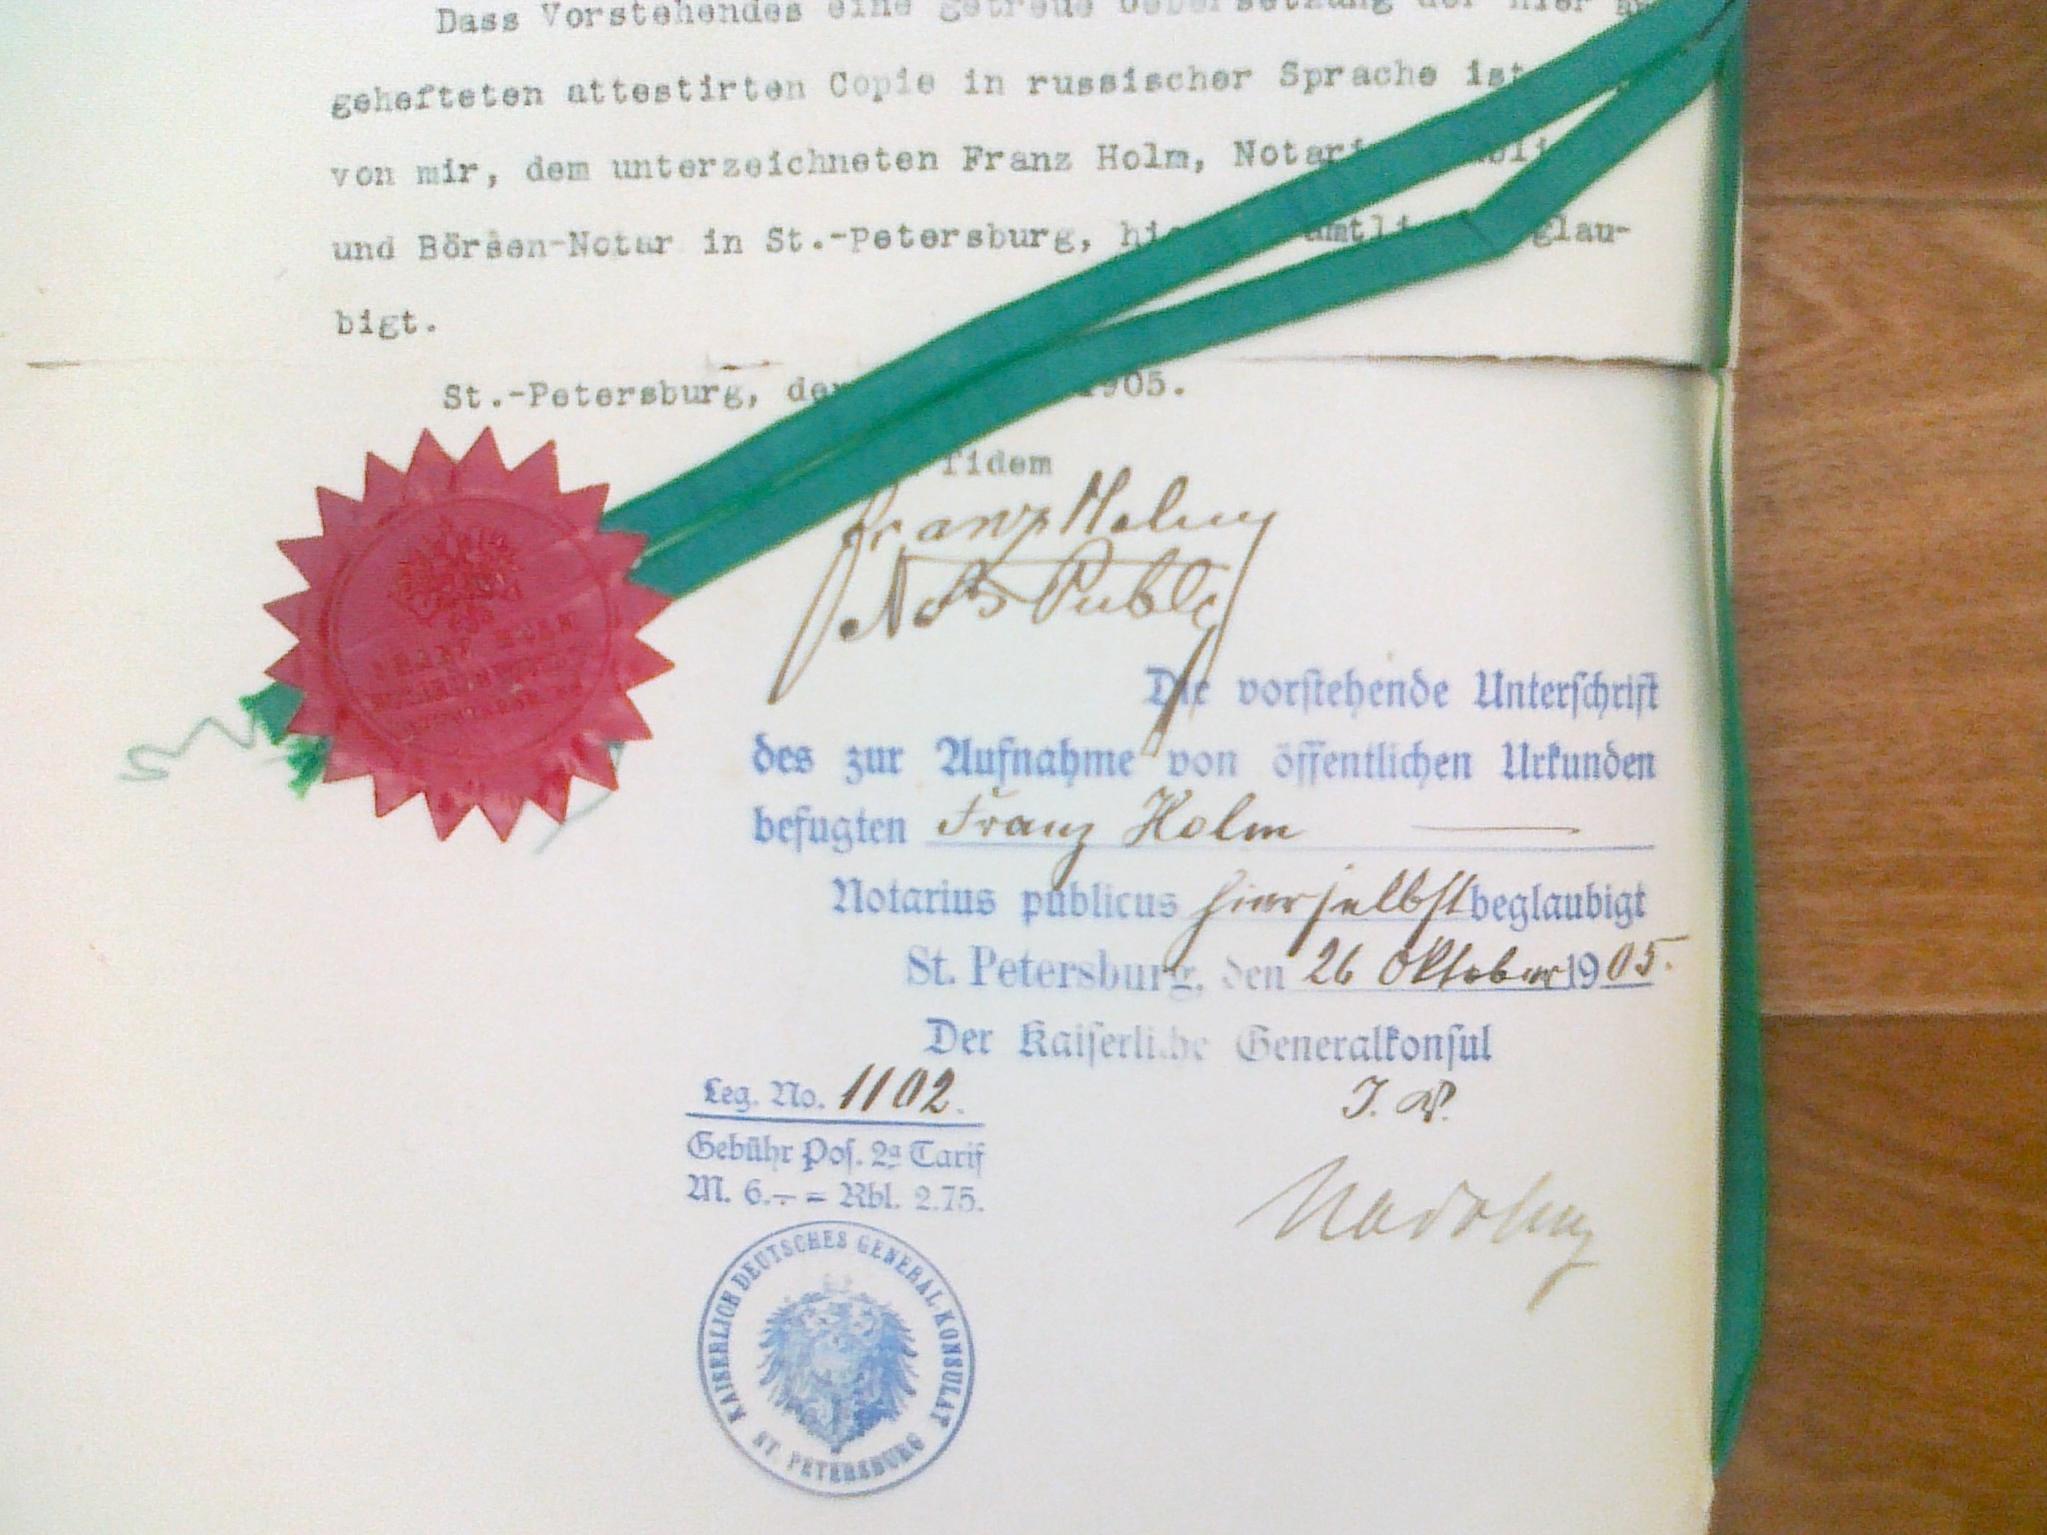 Dass Vorstehendes eine getreue Uebersetzung der hier
gehefteten attestirten Copie in russischer Sprache ist
von mir, dem unterzeichneten Franz Holm,
und Börsen-Notar in St.-Petersburg,
bigt.
St.-Petersburg, 1905.
Fidem
Franz Holm
Nots Publc
Die vorstehende Unterschrift
des zur Aufnahme von öffentlichen Urkunden
befugten Franz Holm
Notarius publicus hierselbst beglaubigt
St. Petersburg, den 26 Oktober 1905.
Der Kaiserliche Generalkonsul
Leg. No. 1102.
J. V.
Gebühr Pos. 2a Tarif
M. 6.— = Rbl. 2.75.
Nadolny
KAISERLICH DEUTSCHES GENERAL-KONSULAT
ST. PETERSBURG